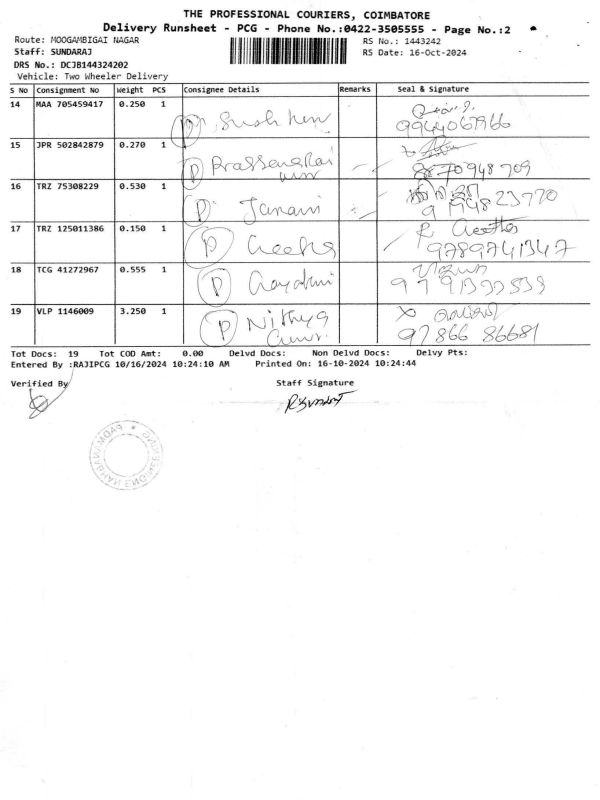 THE PROFESSIONAL COURIERS, COIMBATORE
Delivery Runsheet - PCG - Phone No.:0422-3505555 - Page No.:2
Route: MOOGAMBIGAI NAGAR RS No.: 1443242
Staff: SUNDARAJ RS Date: 16-Oct-2024
DRS No.: DCJB144324202
Vehicle: Two Wheeler Delivery
S No Consignment No Weight PCS Consignee Details Remarks Seal & Signature
14 MAA 705459417 0.250 1
9944067966
15 JPR 502842879 0.270 1 D
8870948709
16 TRZ 75308229 0.530 1 D Janani
17 TRZ 125011386 0.150 1 D Geetha R Geetha
9789741347
18 TCG 41272967 0.555 1 D Gayatri
19 VLP 1146009 3.250 1 D Nithya
97866 86681
Tot Docs: 19 Tot COD Amt: 0.00 Delvd Docs: Non Delvd Docs: Delvy Pts:
Entered By :RAJIPCG 10/16/2024 10:24:10 AM Printed On: 16-10-2024 10:24:44
Verified By Staff Signature